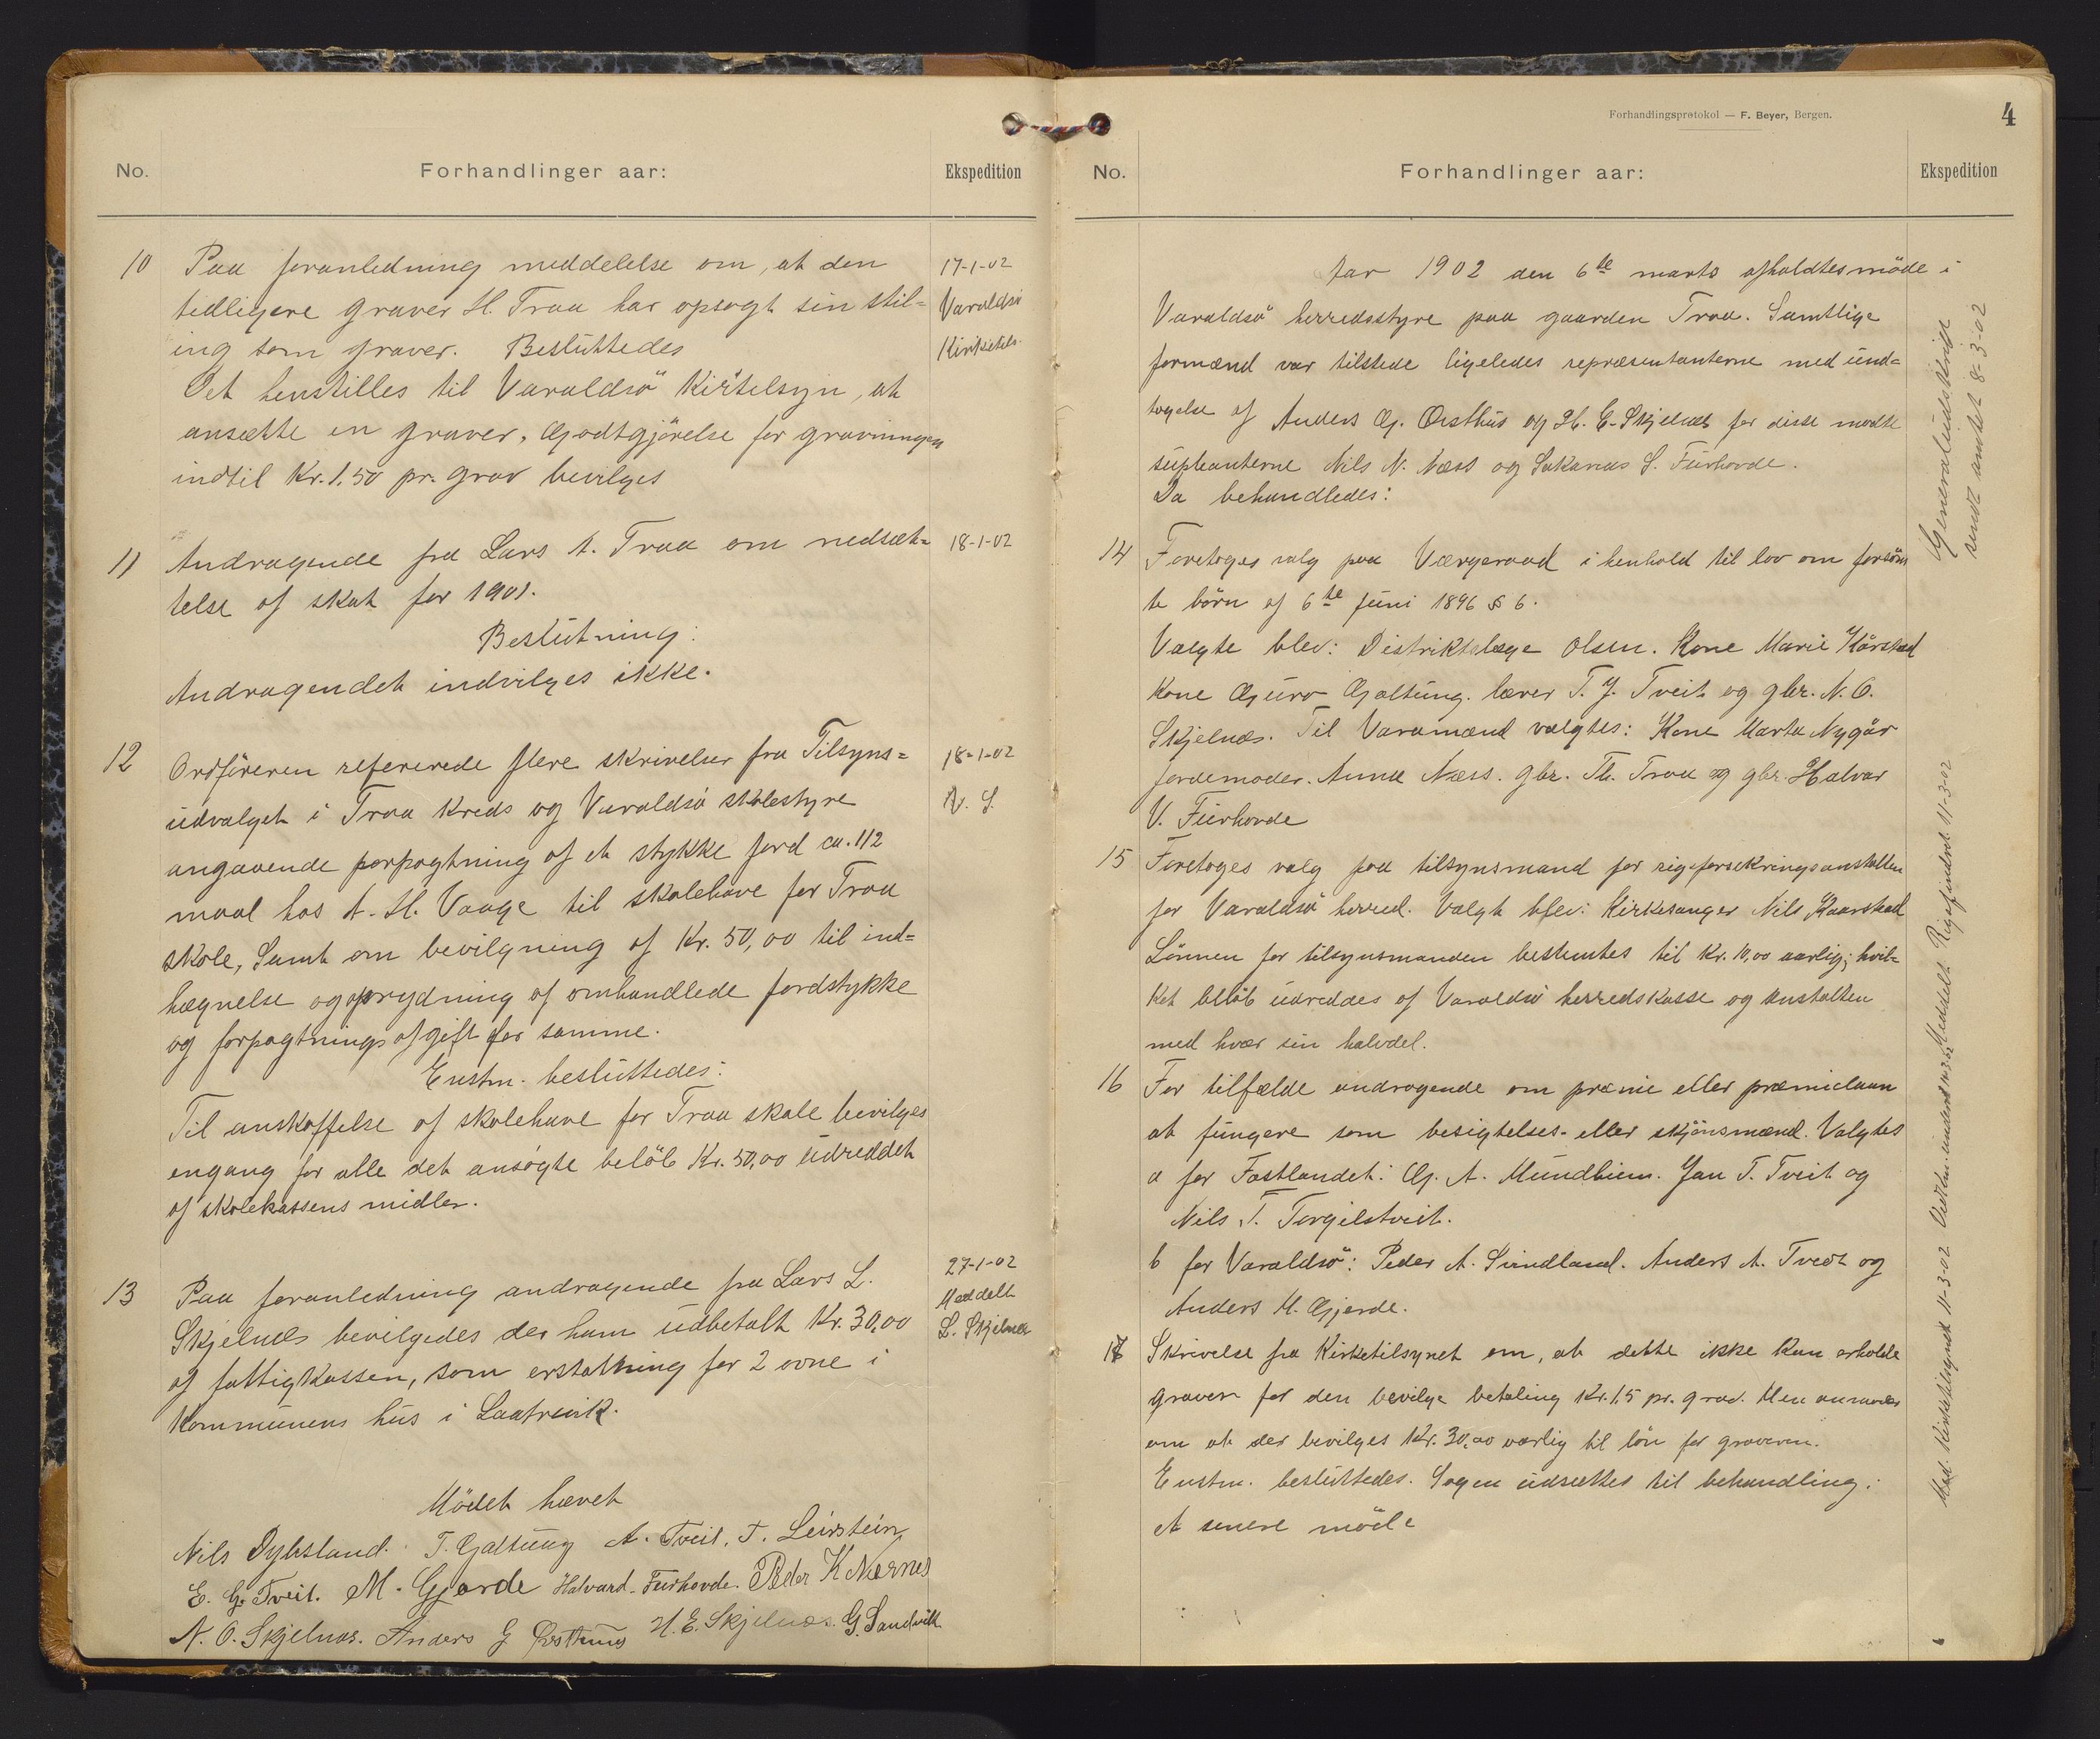 No.
Forhandlinger aar:
Ekspedition
10
Paa foranledning meddelelse om, at den
tidligere graver H. Traa har opsagt sin stil=
ing som graver. Besluttedes
Det henstilles til Varaldsö Kirketelsyn, at
ansætte en graver, Godtgjörelse for gravningen
indtil Kr. 1.50 pr. grav bevilges
17-1-02
Varaldsö
Kirketils.
11
Andragende fra Lars A. Traa om nedsæt=
telse af skat for 1901.
Beslutning:
Andragendet indvilges ikke.
18-1-02
12
Ordföreren refererede flere skrivelser fra Tilsyns=
udvalget i Traa Kreds og Varaldsö skolestyre
angaaende porpagtning af et stykke jord ca. 1/2
maal hos A. H. Vaage til skolehave for Traa
skole, Samt om bevilgning af Kr. 50,00 til ind=
hægnelse og oprydning af omhandlede jordstykke
og forpagtningsafgift for samme.
Enstm. besluttedes:
Til anskaffelse af skolehave for Traa skole bevilges
engang for alle det ansögte belöb Kr. 50,00 udreddet
af skolekassens midler.
18-1-02
V. S.
13
Paa foranledning andragende fra Lars L.
Skjelnæs bevilgedes der ham udbetalt Kr. 30,00
af fattigkassen, som erstatning for 2 ovne i
Kommunens hus i Laatrevik.
27-1-02
Meddelt
L. Skjelnæs
Mödet hævet
Nils Dybsland. T. Galtung A. Tveit, T. Leirstein
E. G. Tveit. M. Gjerde Halvard Furhovde. Peder K Nernes
N. O. Skjelnæs. Anders G Østhuus H. E. Skjelnæs. G. Sandvik
Forhandlingsprotokol — F. Beyer, Bergen.
4
No.
Forhandlinger aar:
Ekspedition
Aar 1902 den 6te marts afholdtes möde i
Varaldsö herredsstyre paa gaarden Traa. Samtlige
formænd var tilstede ligeledes repræsentanterne med und=
tagelse af Anders G. Østhus og H. E. Skjelnæs for disse mödte
supleanterne Nils N. Næss og Sakarias S. Furhovde.
Da behandledes:
Generaludskrift
sendt amtet 8-3-02
14
Foretoges valg paa Værgeraad i henhold til lov om forsöm
te börn af 6te Juni 1896 § 6.
Valgte blev: Distriktslæge Olsen. Kone Marie Kårstad
Kone Guro Galtung. lærer T. J. Tveit og gbr. N. O.
Skjelnæs. Til Varamænd valgtes: Kone Marta Nygår
jordemoder. Anna Næss. gbr. Th. Traa og gbr. Halvar
V. Furhovde
15
Foretoges valg paa tilsynsmand for rigsforsekringsanstalten
for Varaldsö herred. Valgt blev: Kirkesanger Nils Kaarstad
Lönnen for tilsynsmanden bestemtes til Kr. 10,00 aarlig; hvil=
ket belöb udreddes af Varaldsö herredskasse og Anstalten
med hvær sin halvdel.
16
For tilfælde andragende om præmie eller præmielaan
at fungere som besigtelses- eller skjönsmænd. Valgtes
a for Fastlandet: G. A. Mundheim. Jan T. Tveit og
Nils T. Torgilstveit.
b for Varaldsö: Peder A. Sundland. Anders A. Tvedt og
Anders M. Gjerde.
17
Skrivelse fra Kirketilsynet om, at dette ikke kan erholde
graver for den bevilge betaling Kr. 1,5 pr. grav. Men anmodes
om at der bevilges Kr. 30,00 aarlig til lön for graveren.
Enstm. besluttedes. Sagen udsættes til behandling i
et senere möde
Meddelt Rigsf
11-3-02
Med. Kirketilsynet 11-3-02